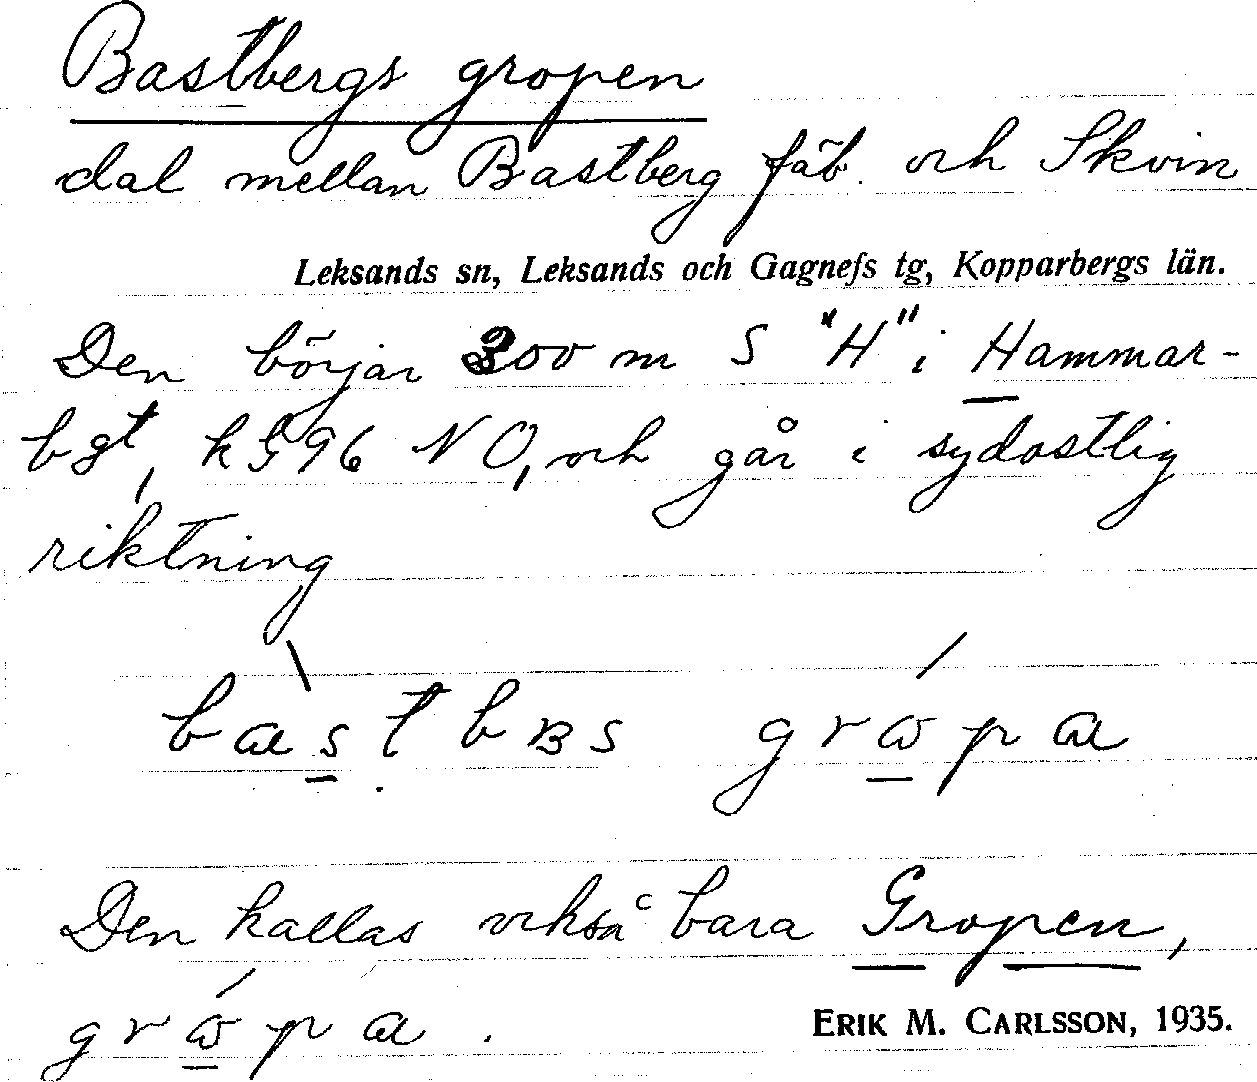 Bastbergs gropen
dal mellan Bastberg fäb. och Skvin
Leksands sn, Leksands och Gagnefs tg, Kopparbergs län.
Den börjar 300 m S "H" i Hammar-
bgt, k§96 NO, och går i sydostlig
riktning
bastbʙs gråpa
Den kallas också bara Gropen,
gråpa.
ERIK M. CARLSSON, 1935.